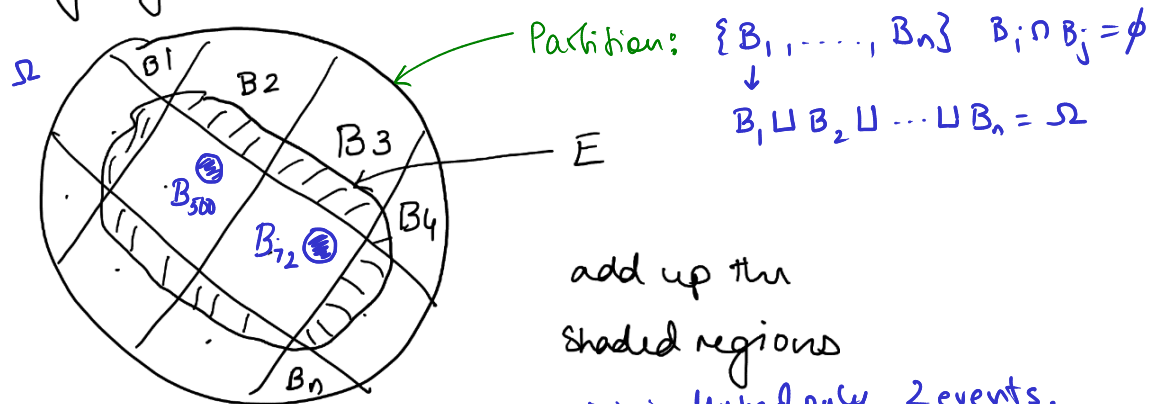 Ω
B1
B2
B3
B4
Bn
B₅₀₀
B₇₂
E
Partition: {B₁, ....., Bₙ} Bᵢ∩Bⱼ = ϕ
↓
B₁ ⊔ B₂ ⊔ ... ⊔ Bₙ = Ω
add up the
shaded regions
2 events.